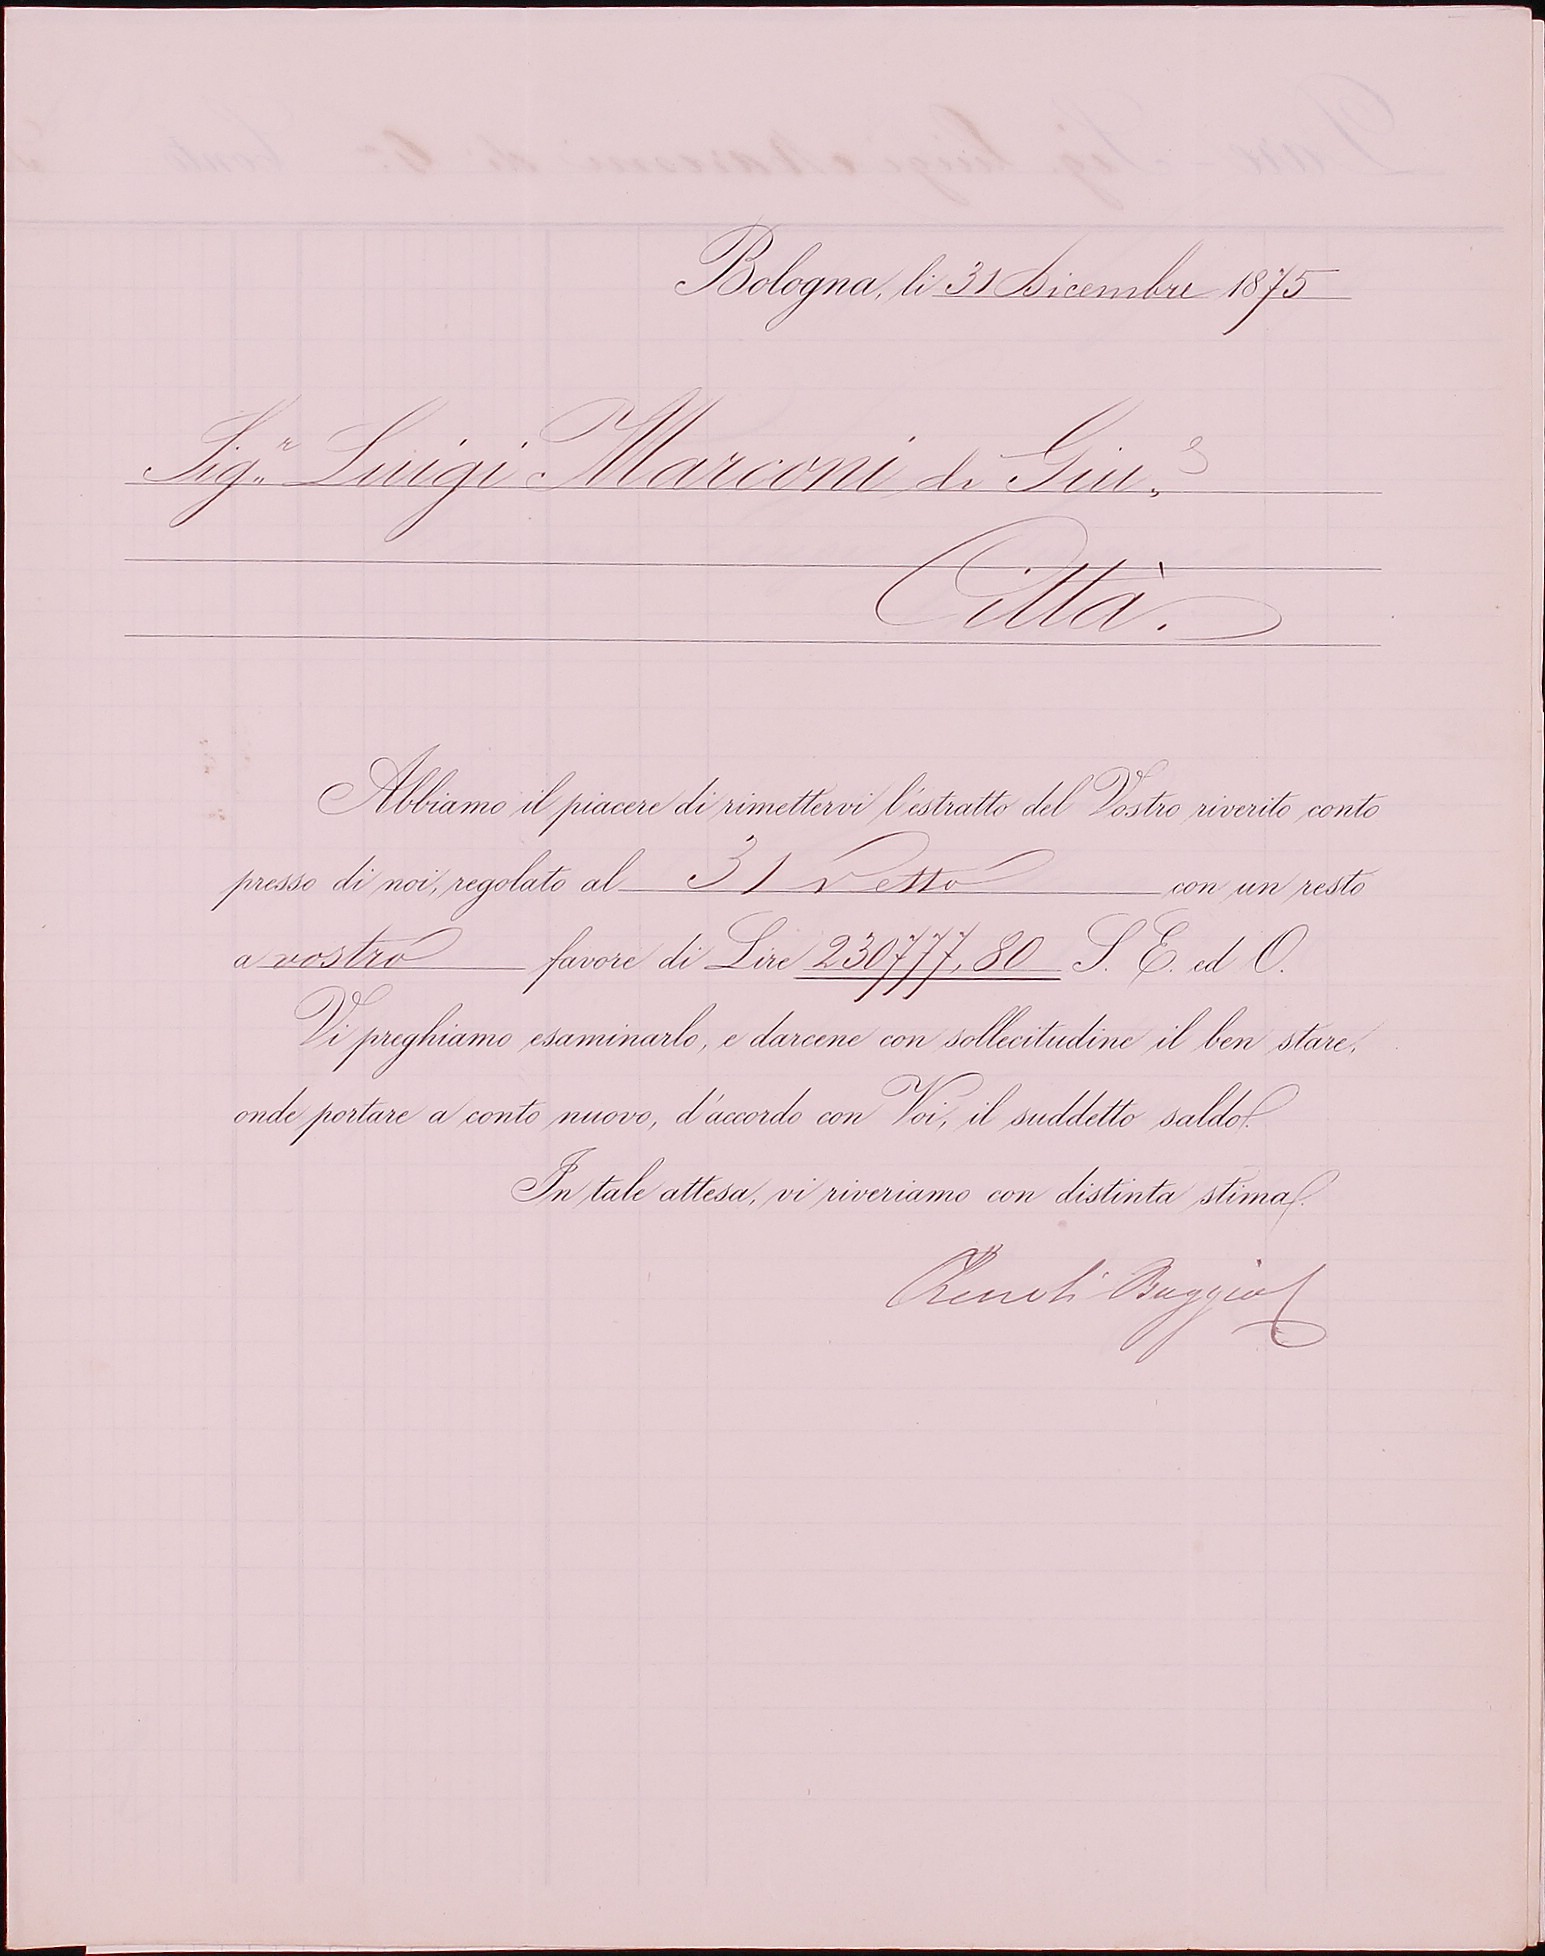 Bologna, li 31 Dicembre 1875
Sig.r Luigi Marconi di Giu.e
Città.
Abbiamo il piacere di rimettervi l'estratto del Vostro riverito conto
presso di noi, regolato al 31 Detto con un resto
a vostro favore di Lire 230777,80 S. E. ed O.
Vi preghiamo esaminarlo, e darcene con sollecitudine il ben stare,
onde portare a conto nuovo, d'accordo con Voi, il suddetto saldo.
In tale attesa, vi riveriamo con distinta stima.
Renoli Buggio